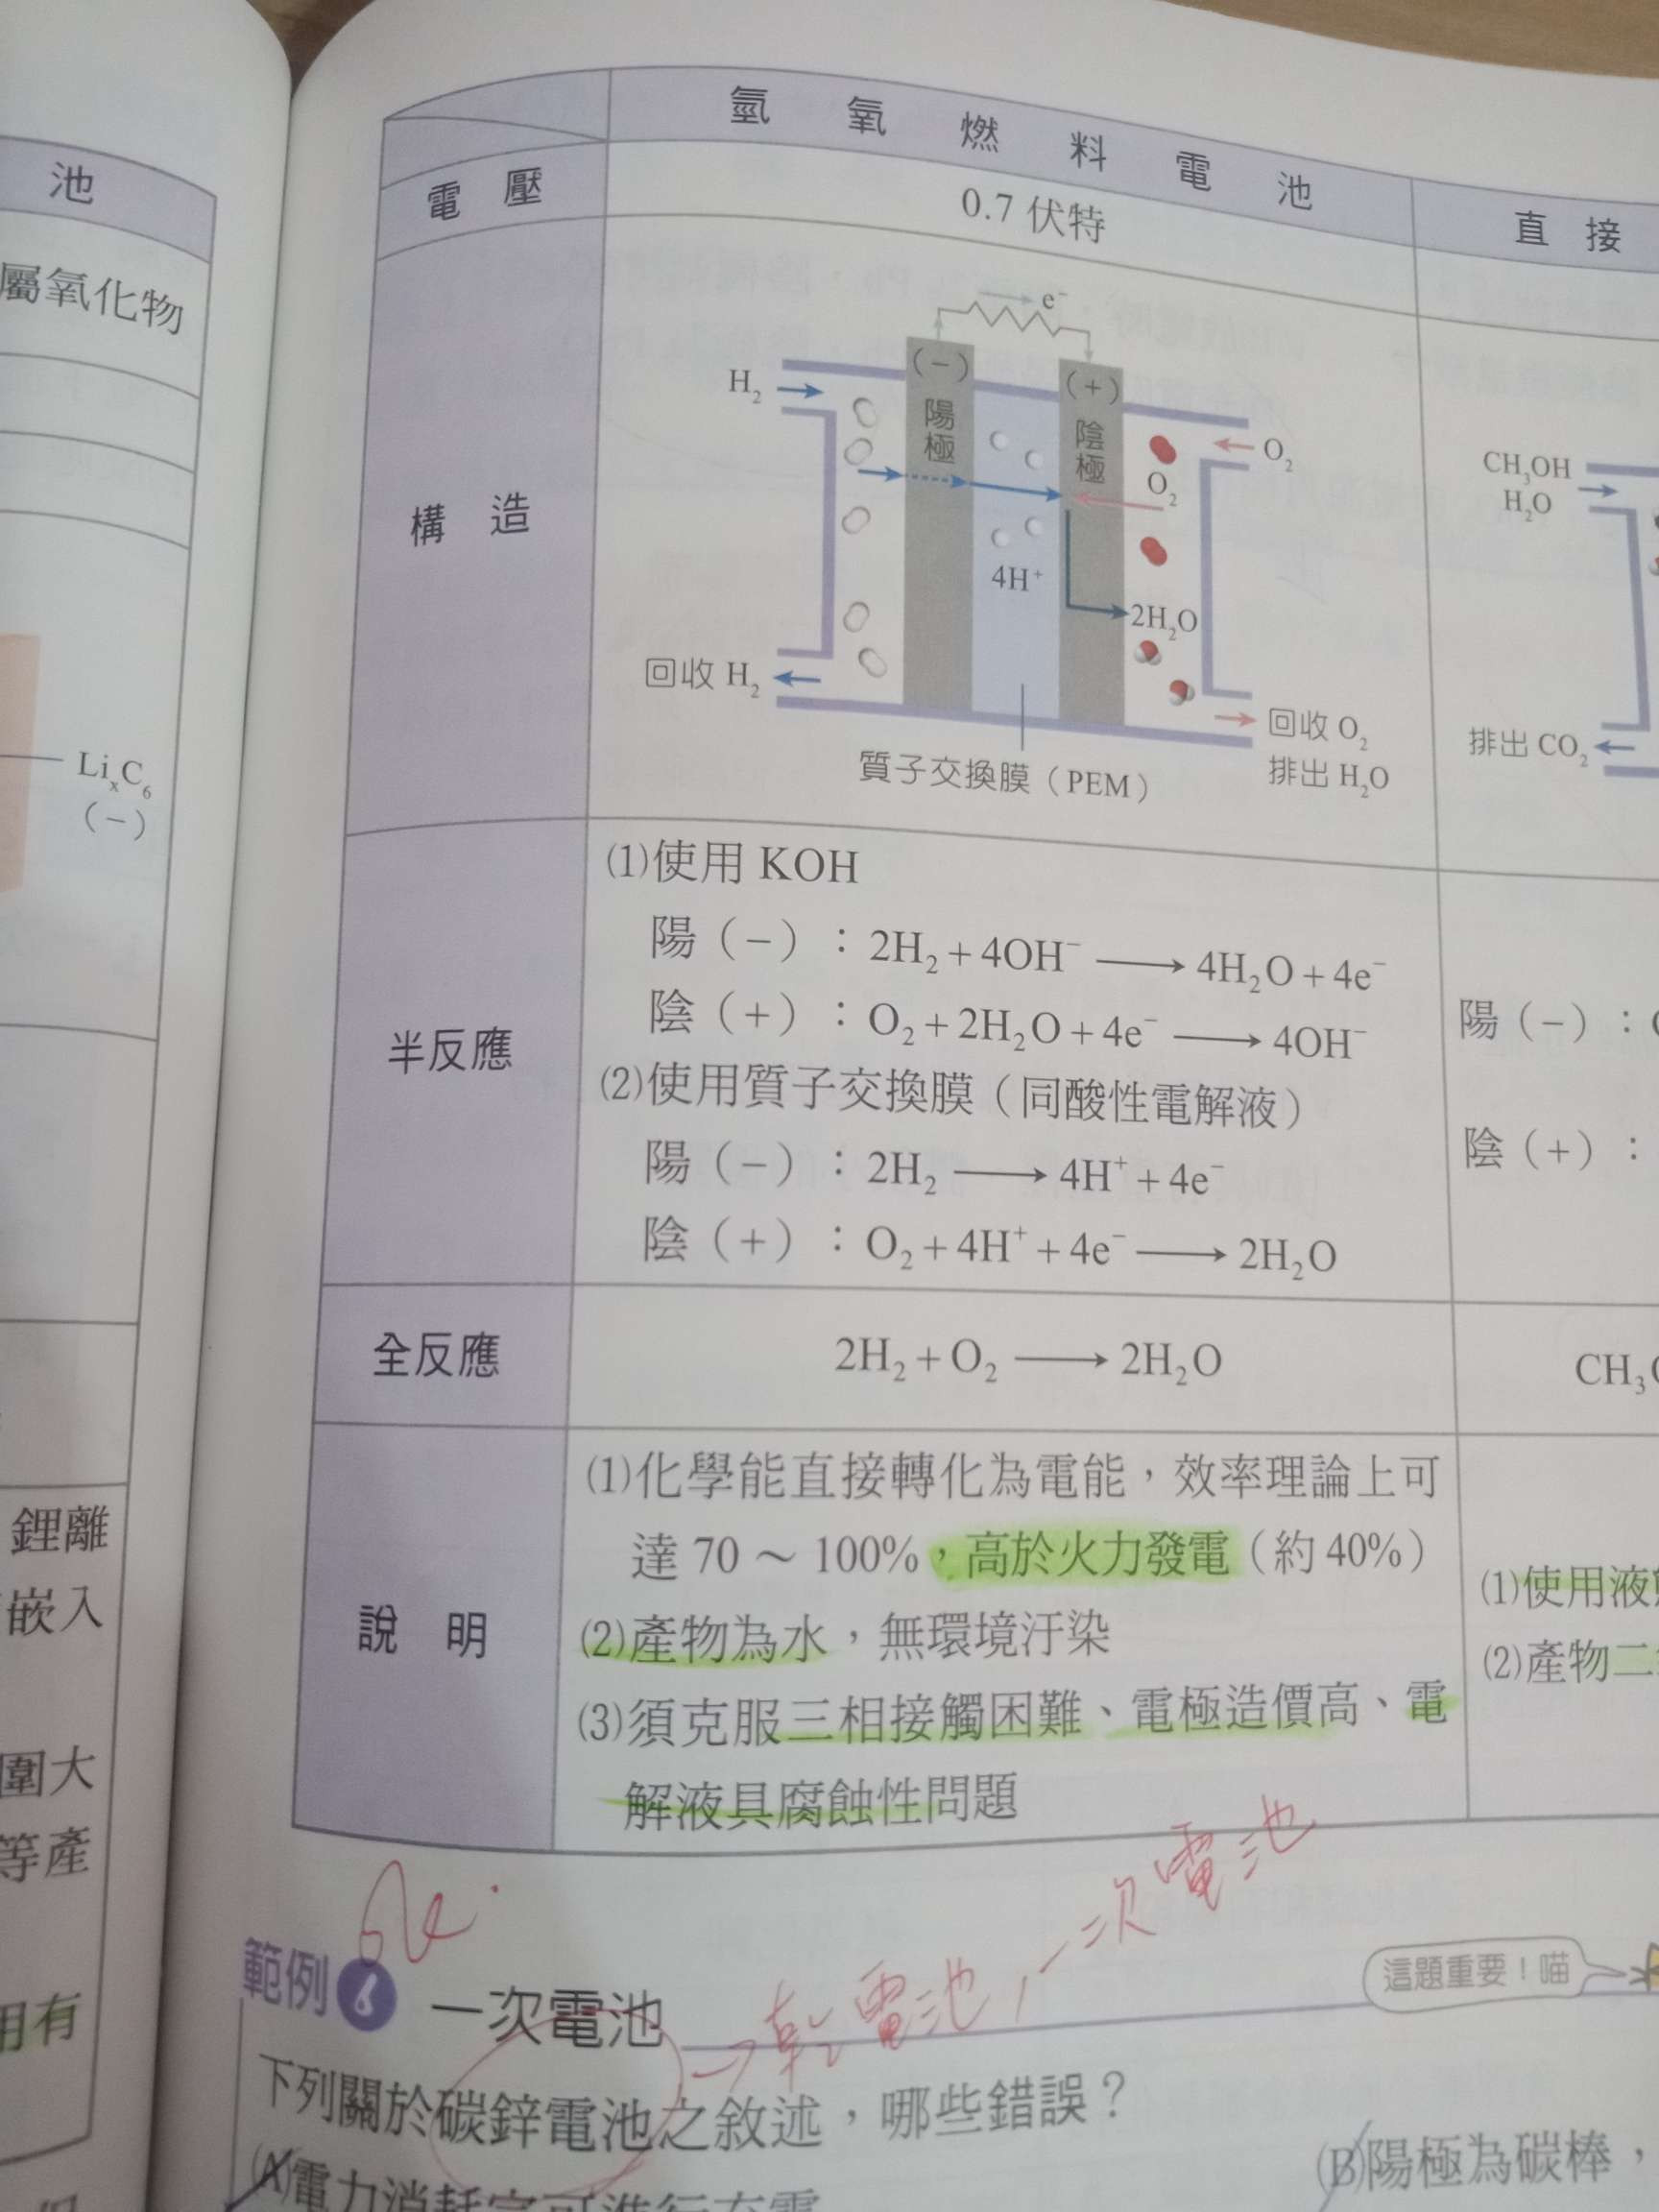 池
屬氧化物
LiₓC₆
(－)
鋰離
嵌入
圍大
等產
用有
氫氧燃料電池
直接
電壓
0.7 伏特
構造
e⁻
(－)
陽極
(＋)
陰極
H₂
O₂
O₂
4H⁺
2H₂O
回收 H₂
回收 O₂
排出 H₂O
質子交換膜（PEM）
CH₃OH
H₂O
排出 CO₂
半反應
⑴使用 KOH
陽（－）：2H₂＋4OH⁻ ⟶ 4H₂O＋4e⁻
陰（＋）：O₂＋2H₂O＋4e⁻ ⟶ 4OH⁻
⑵使用質子交換膜（同酸性電解液）
陽（－）：2H₂ ⟶ 4H⁺＋4e⁻
陰（＋）：O₂＋4H⁺＋4e⁻ ⟶ 2H₂O
陽（－）：
陰（＋）：
全反應
2H₂＋O₂ ⟶ 2H₂O
CH₃
說明
⑴化學能直接轉化為電能，效率理論上可
達 70～100%，高於火力發電（約 40%）
⑵產物為水，無環境汙染
⑶須克服三相接觸困難、電極造價高、電
解液具腐蝕性問題
⑴使用液
⑵產物二
範例 6 一次電池
→乾電池，一次電池
這題重要！喵
下列關於碳鋅電池之敘述，哪些錯誤？
(A)電力消耗完可進行充電
(B)陽極為碳棒，